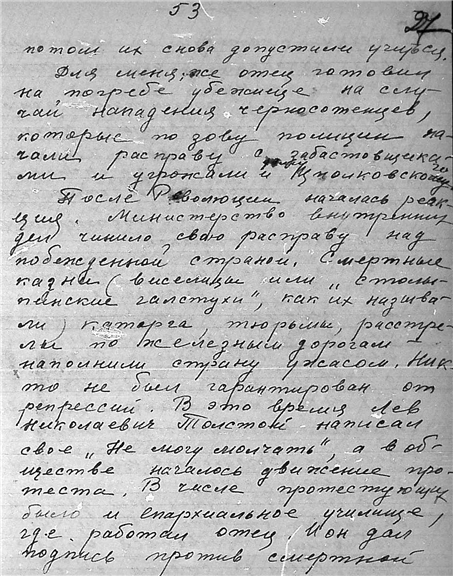 53
27
потом их снова допустили учиться.
Для меня же отец готовил
на погребе убежище на слу-
чай нападения черносотенцев,
которые по зову полиции на-
чали расправу с забастовщика-
ми и угрожали и Циолковскому
После Революции началась реак-
ция. Министерство внутренних
дел чинило свою расправу над
побежденной страной. Смертные
казни (виселицы или „столы-
пинские галстухи", как их называ-
ли) каторга, тюрьмы, расстре-
лы по железным дорогам -
наполнили страну ужасом. Ник-
то не был гарантирован от
репрессий. В это время Лев
Николаевич Толстой написал
свое „Не могу молчать", а в об-
ществе началось движение про-
теста. В числе протестующих
было и епархиальное училище,
где работал отец. И он дал
подпись против смертной